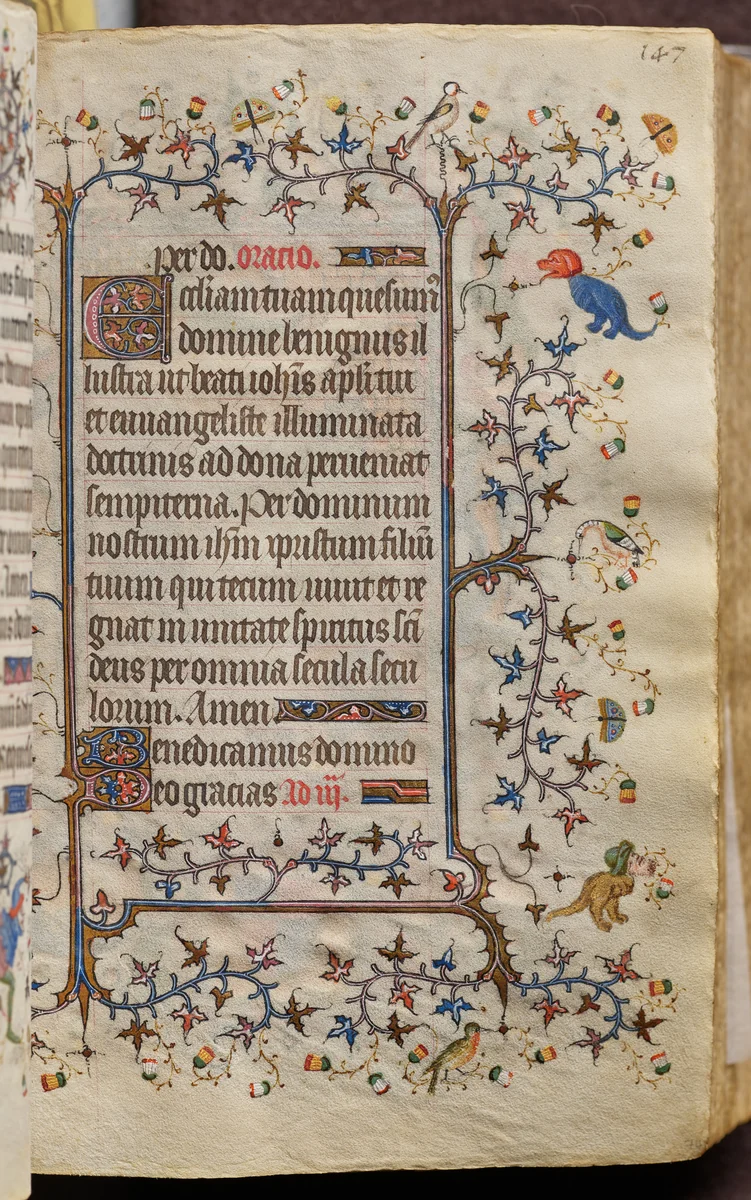 147
per do. oracio.
Ecclīam tuam quesum⁹
domine benignus il
lustra ut beati ioh̄is apl̄i tui
et euuangeliste illuminata
doctrinis ad dona perueniat
sempiterna. Per dominum
nostrum ih̄m xpristum filiū
tuum qui tecum uiuit et re
gnat in unitate spiritus sc̄i
deus per omnia secula secu
lorum. Amen.
Benedicamus domino
Deo gracias Ad iij.